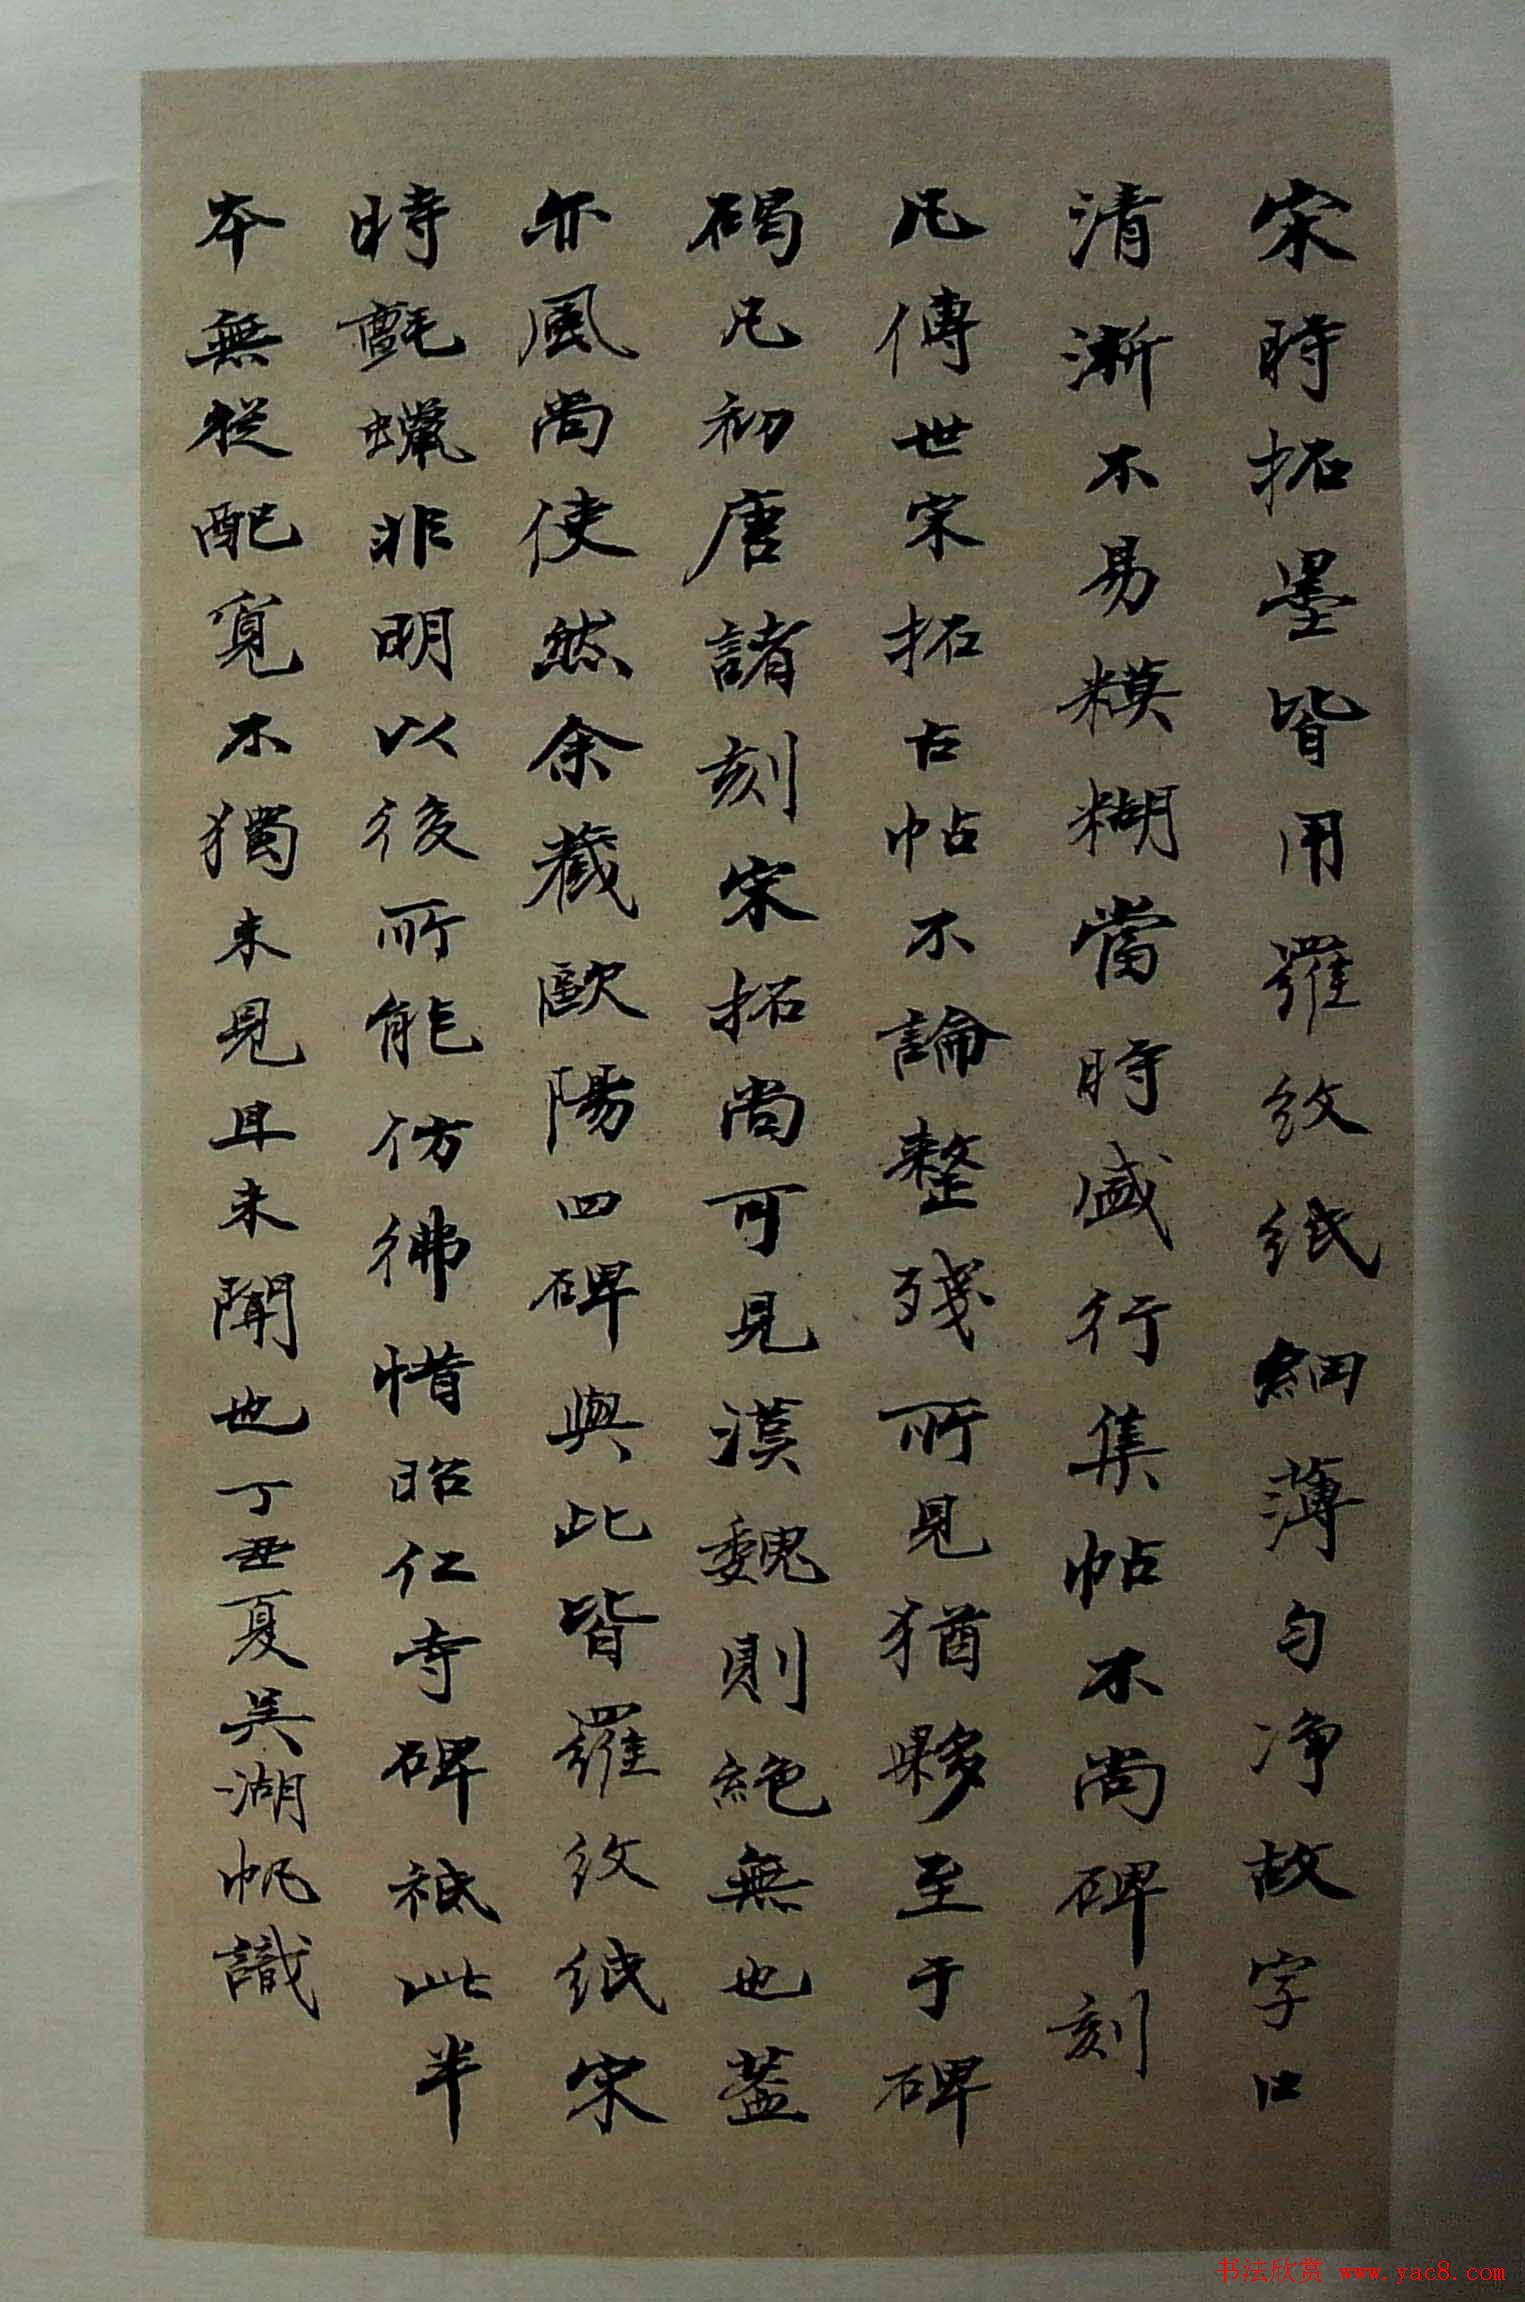 宋時拓墨皆用羅紋紙細薄勻淨故字口
清漸不易糢糊當時盛行集帖不尚碑刻
凡傳世宋拓古帖不論整殘所見猶夥至于碑
碣凡初唐諸刻宋拓尚可見漢魏則絕無也蓋
亦風尚使然余藏歐陽四碑與此皆羅紋紙宋
時氈蠟非明以後所能仿彿惜昭仁寺碑祗此半
本無從配覓不獨未見且未聞也丁丑夏吳湖帆識
书法欣赏 www.yac8.com